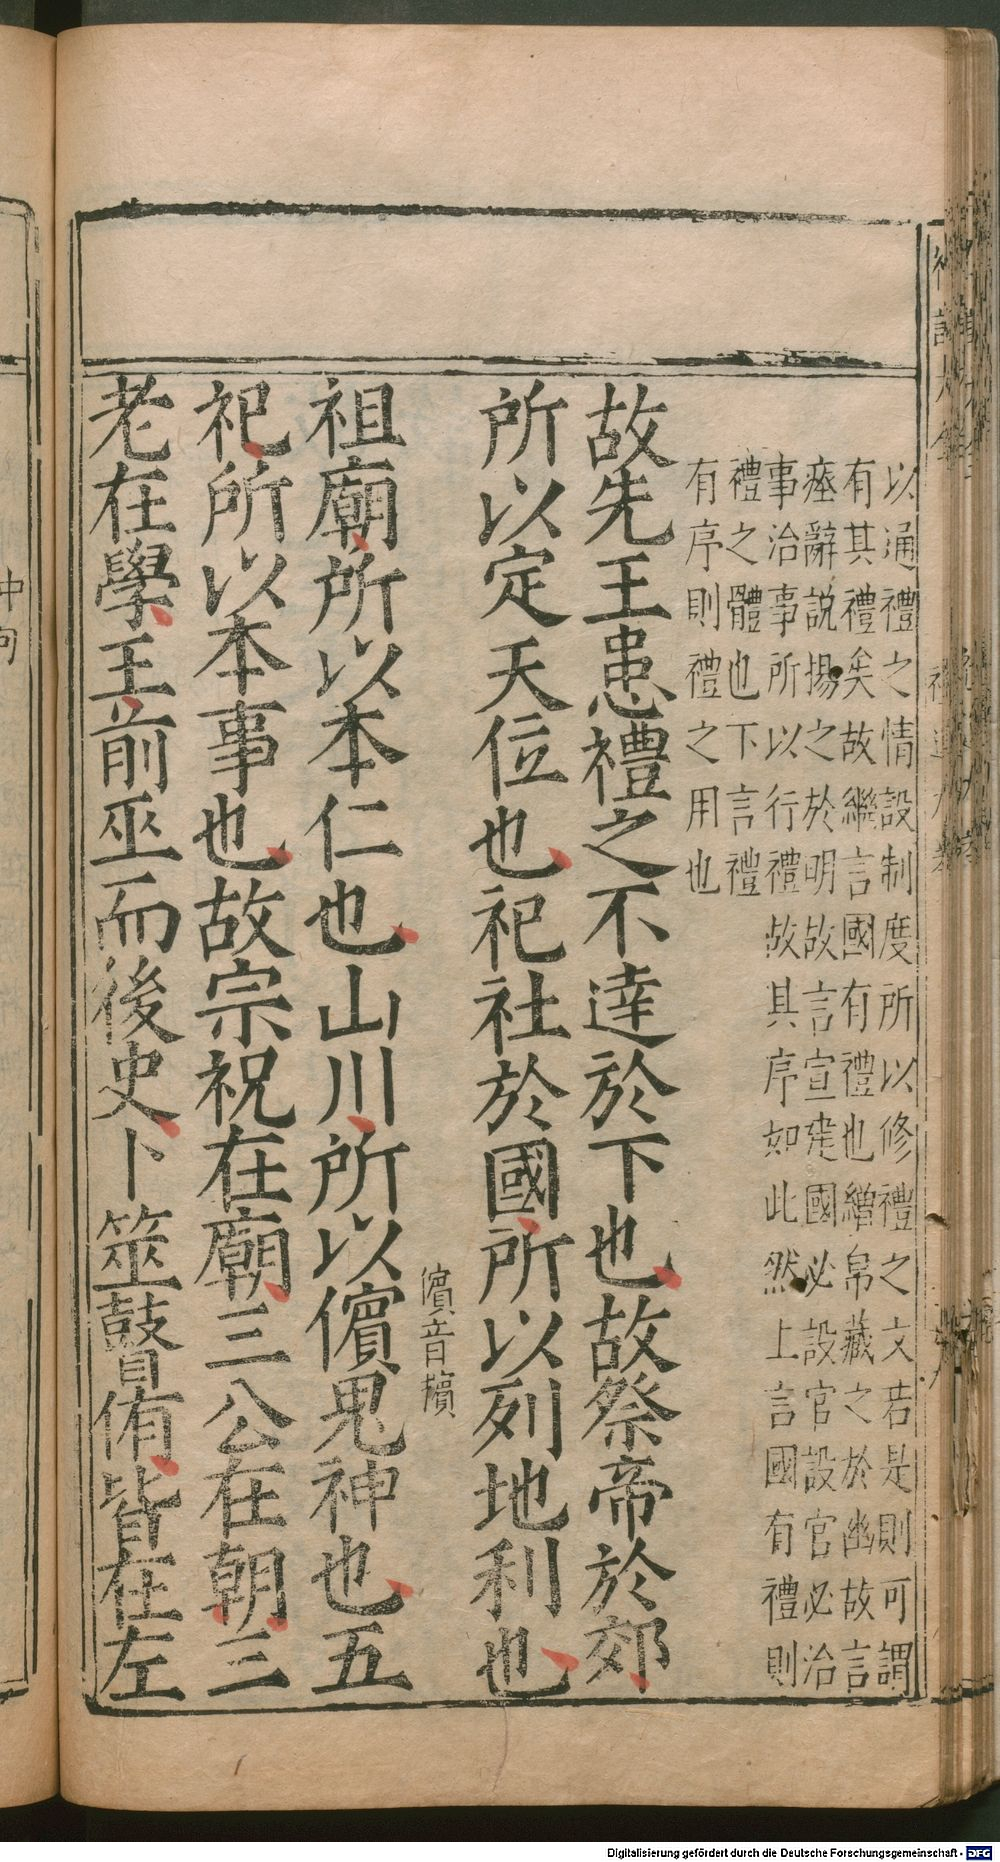 以通禮之情設制度所以修禮之文若是則可謂
有其禮矣故繼言國有禮也繒帛藏之於幽故言
瘞辭說揚之於明故言宣建國必設官設官必治
事治事所以行禮故其序如此然上言國有禮則
禮之體也下言禮
有序則禮之用也
故先王患禮之不達於下也故祭帝於郊
所以定天位也祀社於國所以列地利也
儐音擯
祖廟所以本仁也山川所以儐鬼神也五
祀所以本事也故宗祝在廟三公在朝三
老在學王前巫而後史卜筮瞽侑皆在左
Digitalisierung gefördert durch die Deutsche Forschungsgemeinschaft - DFG